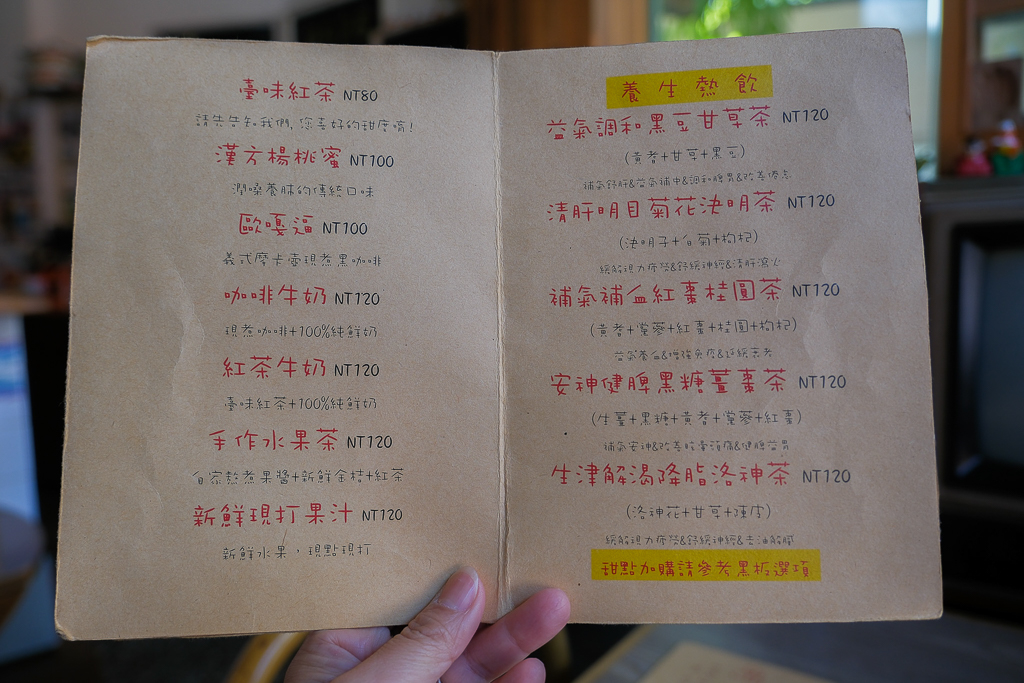 臺味紅茶 NT80
請先告知我們, 您喜好的甜度唷!
漢方楊桃蜜 NT100
潤嗓養肺的傳統口味
歐嘎逼 NT100
義式摩卡壺現煮黑咖啡
咖啡牛奶 NT120
現煮咖啡+100%純鮮奶
紅茶牛奶 NT120
臺味紅茶+100%純鮮奶
手作水果茶 NT120
自家熬煮果醬+新鮮金桔+紅茶
新鮮現打果汁 NT120
新鮮水果，現點現打
養生熱飲
益氣調和黑豆甘草茶 NT120
(黃耆+甘草+黑豆)
補氣舒肝&益氣補中&調和脾胃&改善倦怠
清肝明目菊花決明茶 NT120
(決明子+白菊+枸杞)
緩解視力疲勞&舒緩神經&清肝瀉火
補氣補血紅棗桂圓茶 NT120
(黃耆+黨蔘+紅棗+桂圓+枸杞)
益氣養血&增強免疫&延緩衰老
安神健脾黑糖薑棗茶 NT120
(生薑+黑糖+黃耆+黨蔘+紅棗)
補氣安神&改善脘臺頂痛&健脾益胃
生津解渴降脂洛神茶 NT120
(洛神花+甘草+陳皮)
緩解視力疲勞&舒緩神經&去油解膩
甜點加購請參考黑板選項